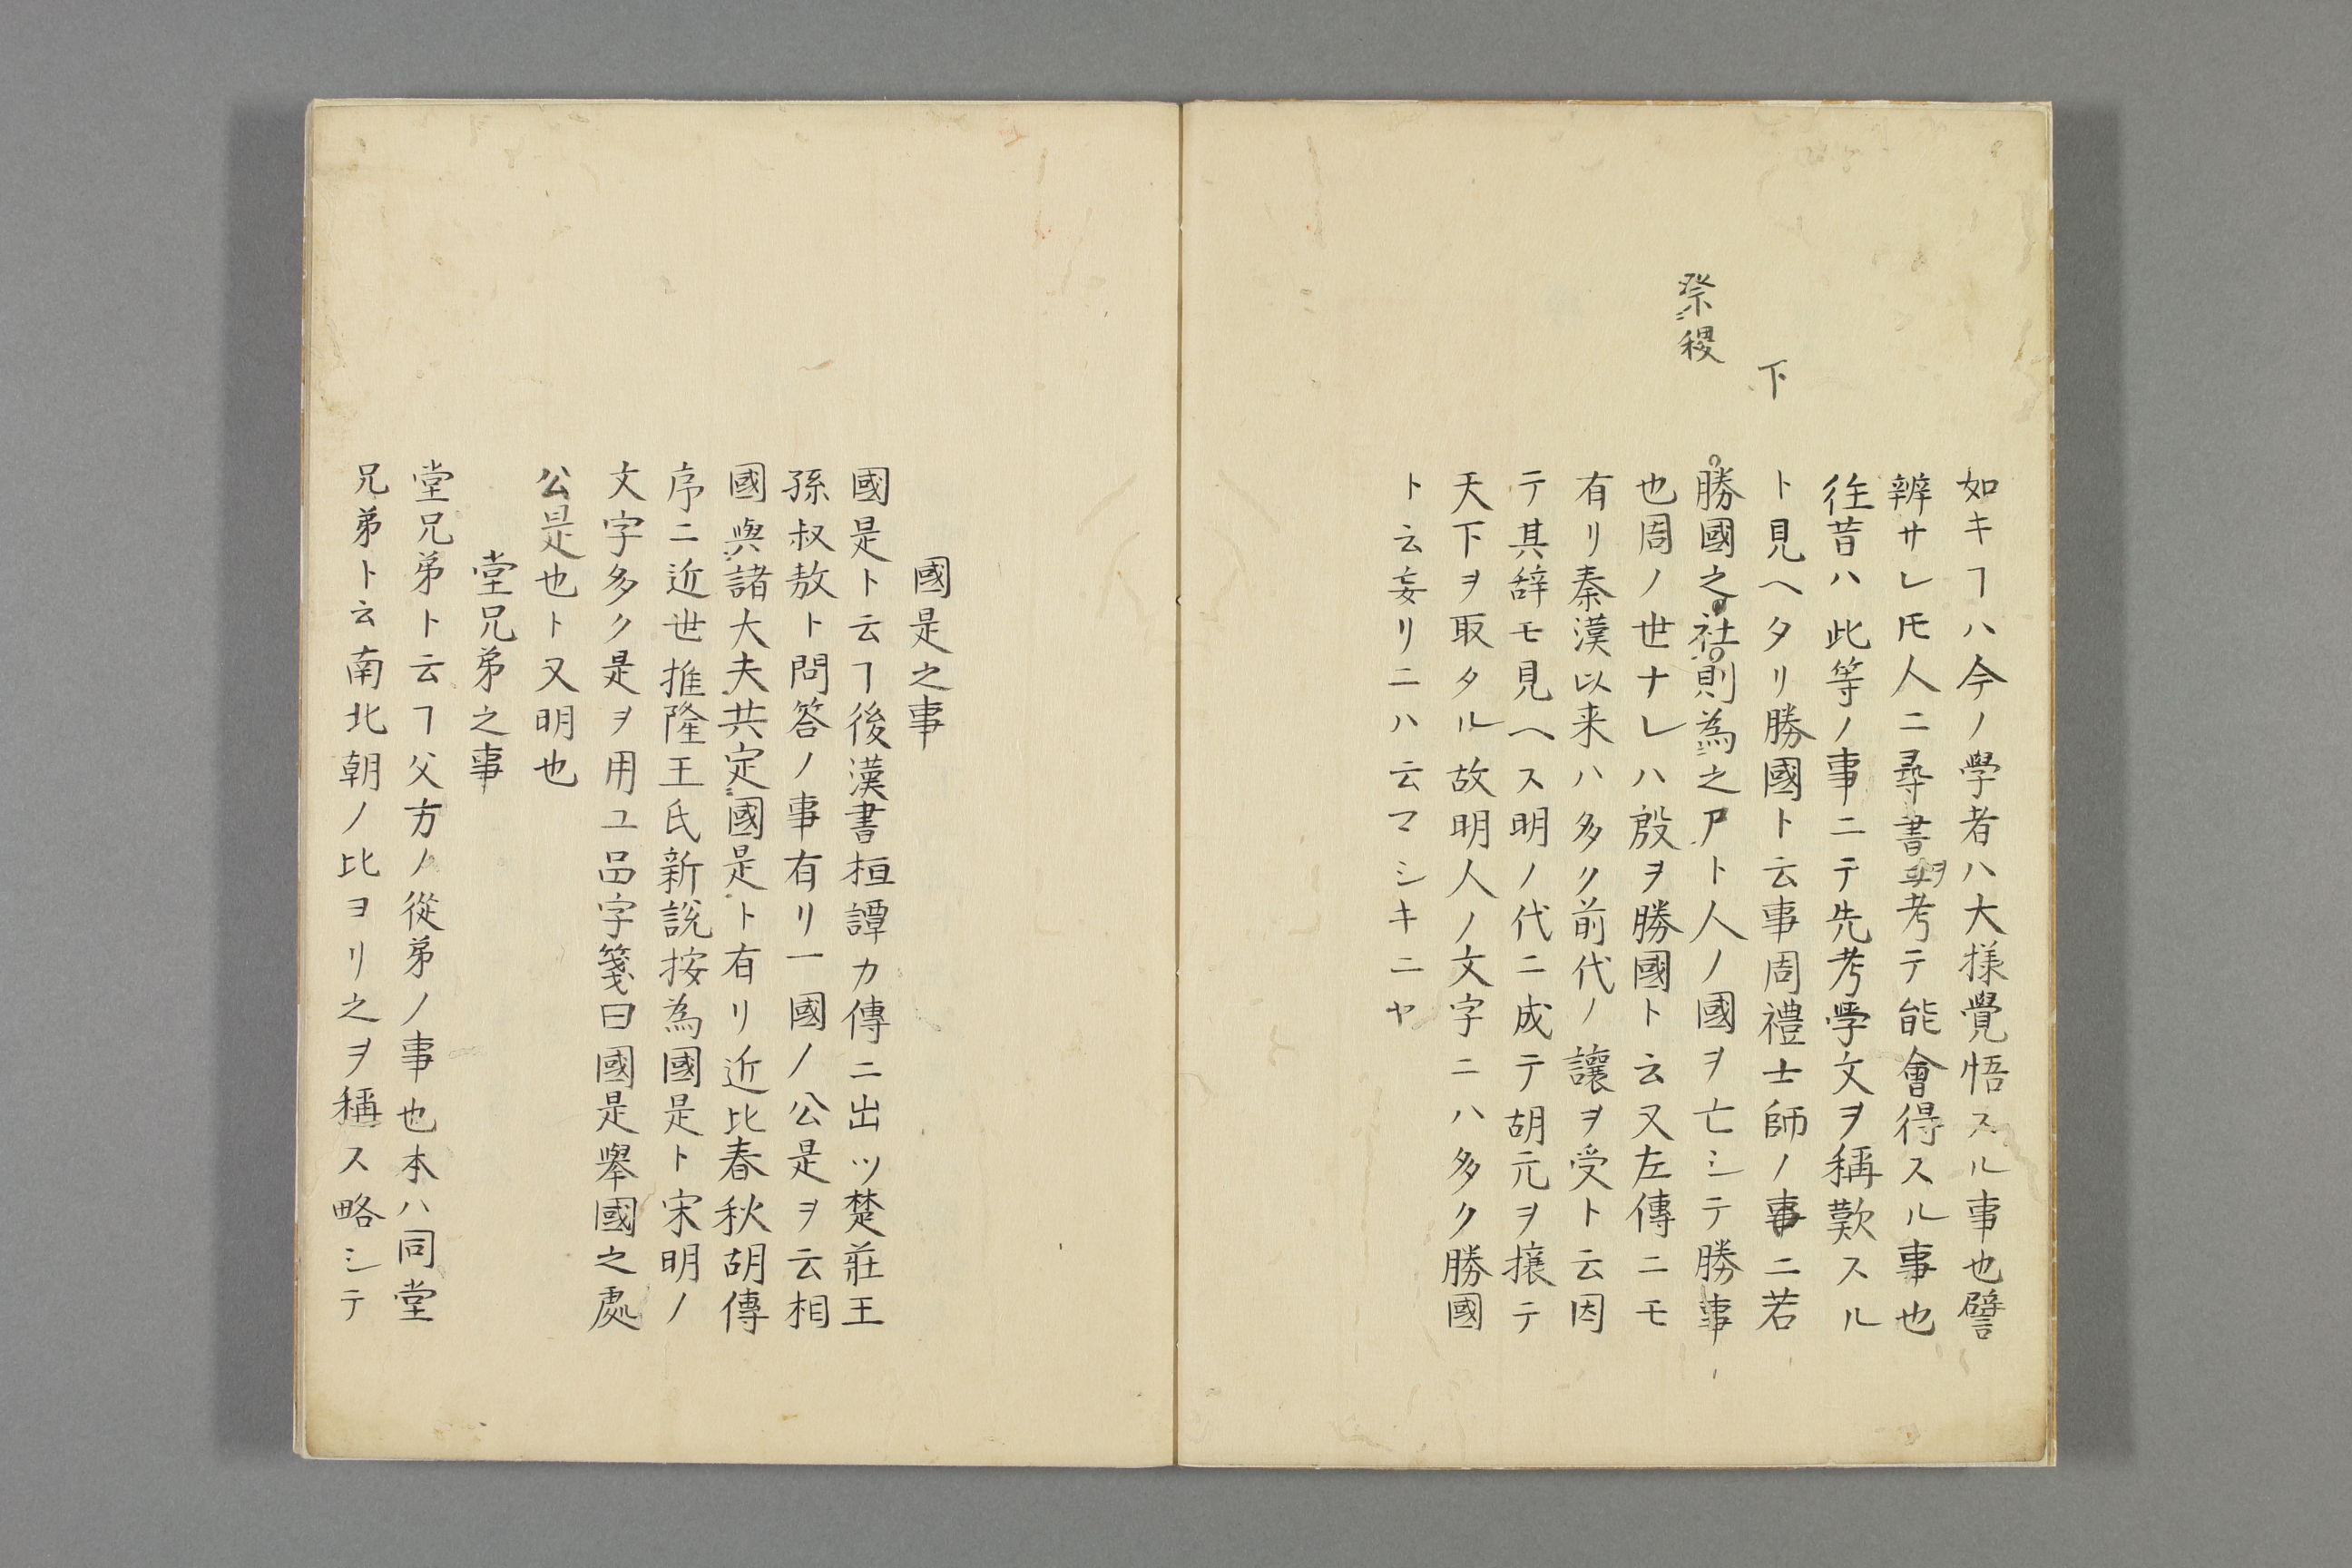 如キヿハ今ノ學者ハ大様覺悟スル事也譬
辨サレ𪜈人ニ尋書ヲ考テ能會得スル事也
徃昔ハ此等ノ事ニテ先考学文ヲ稱歎スル
下
ト見ヘタリ勝國ト云事周禮士師ノ事ニ若
祭稷
勝國之社則為之尸ト人ノ國ヲ亡シテ勝事
也周ノ世ナレハ殷ヲ勝國ト云又左傳ニモ
有リ秦漢以来ハ多ク前代ノ讓ヲ受ト云因
テ其辞モ見ヘス明ノ代ニ成テ胡元ヲ攘テ
天下ヲ取タル故明人ノ文字ニハ多ク勝國
ト云妄リニハ云マシキニヤ
國是之事
國是ト云ヿ後漢書桓譚カ傳ニ出ツ楚莊王
孫叔敖ト問答ノ事有リ一國ノ公是ヲ云相
國與諸大夫共定國是ト有リ近比春秋胡傳
序ニ近世推隆王氏新説按為國是ト宋明ノ
文字多ク是ヲ用ユ品字箋曰國是擧國之處
公是也ト又明也
堂兄弟之事
堂兄弟ト云ヿ父方ノ從弟ノ事也本ハ同堂
兄弟ト云南北朝ノ比ヨリ之ヲ稱ス略シテ